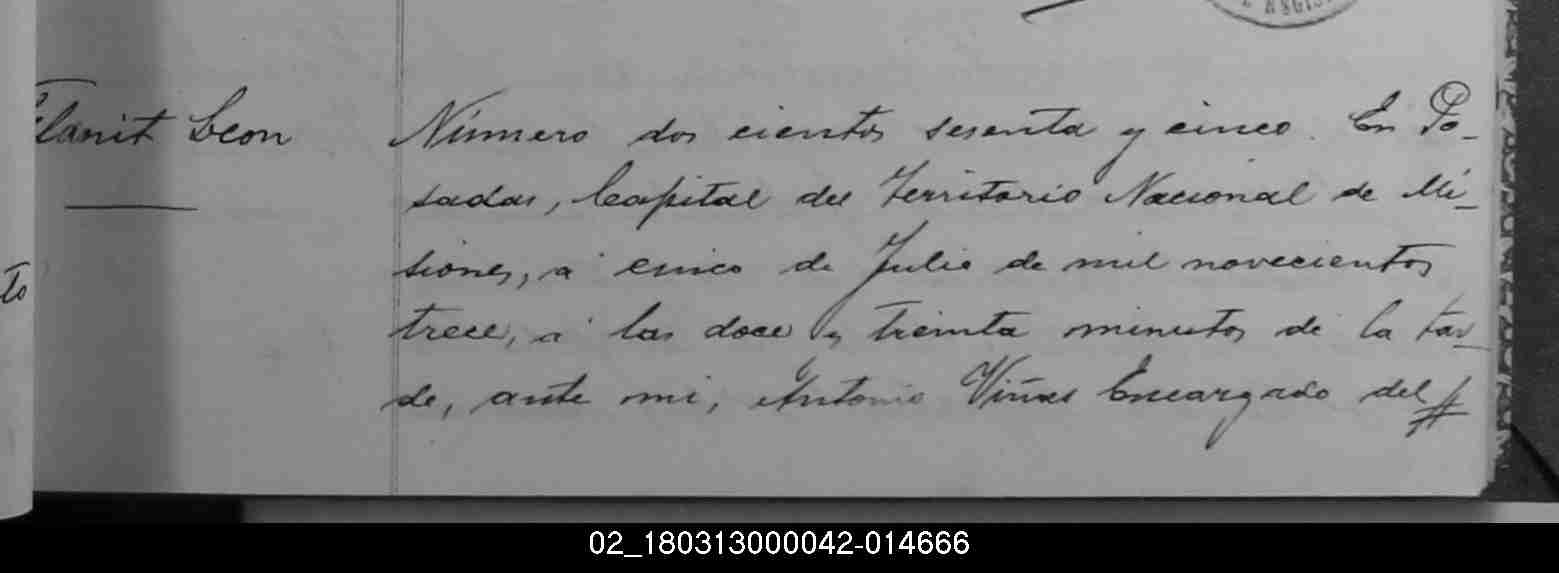 Leon
Número dos cientos sesenta y cinco. En Po-
sadas, Capital del Territorio Nacional de Mi-
siones, a cinco de Julio de mil novecientos
to
trece, a las doce y treinta minutos de la tar-
de, ante mi, Antonio Viñas Encargado del
02_180313000042-014666